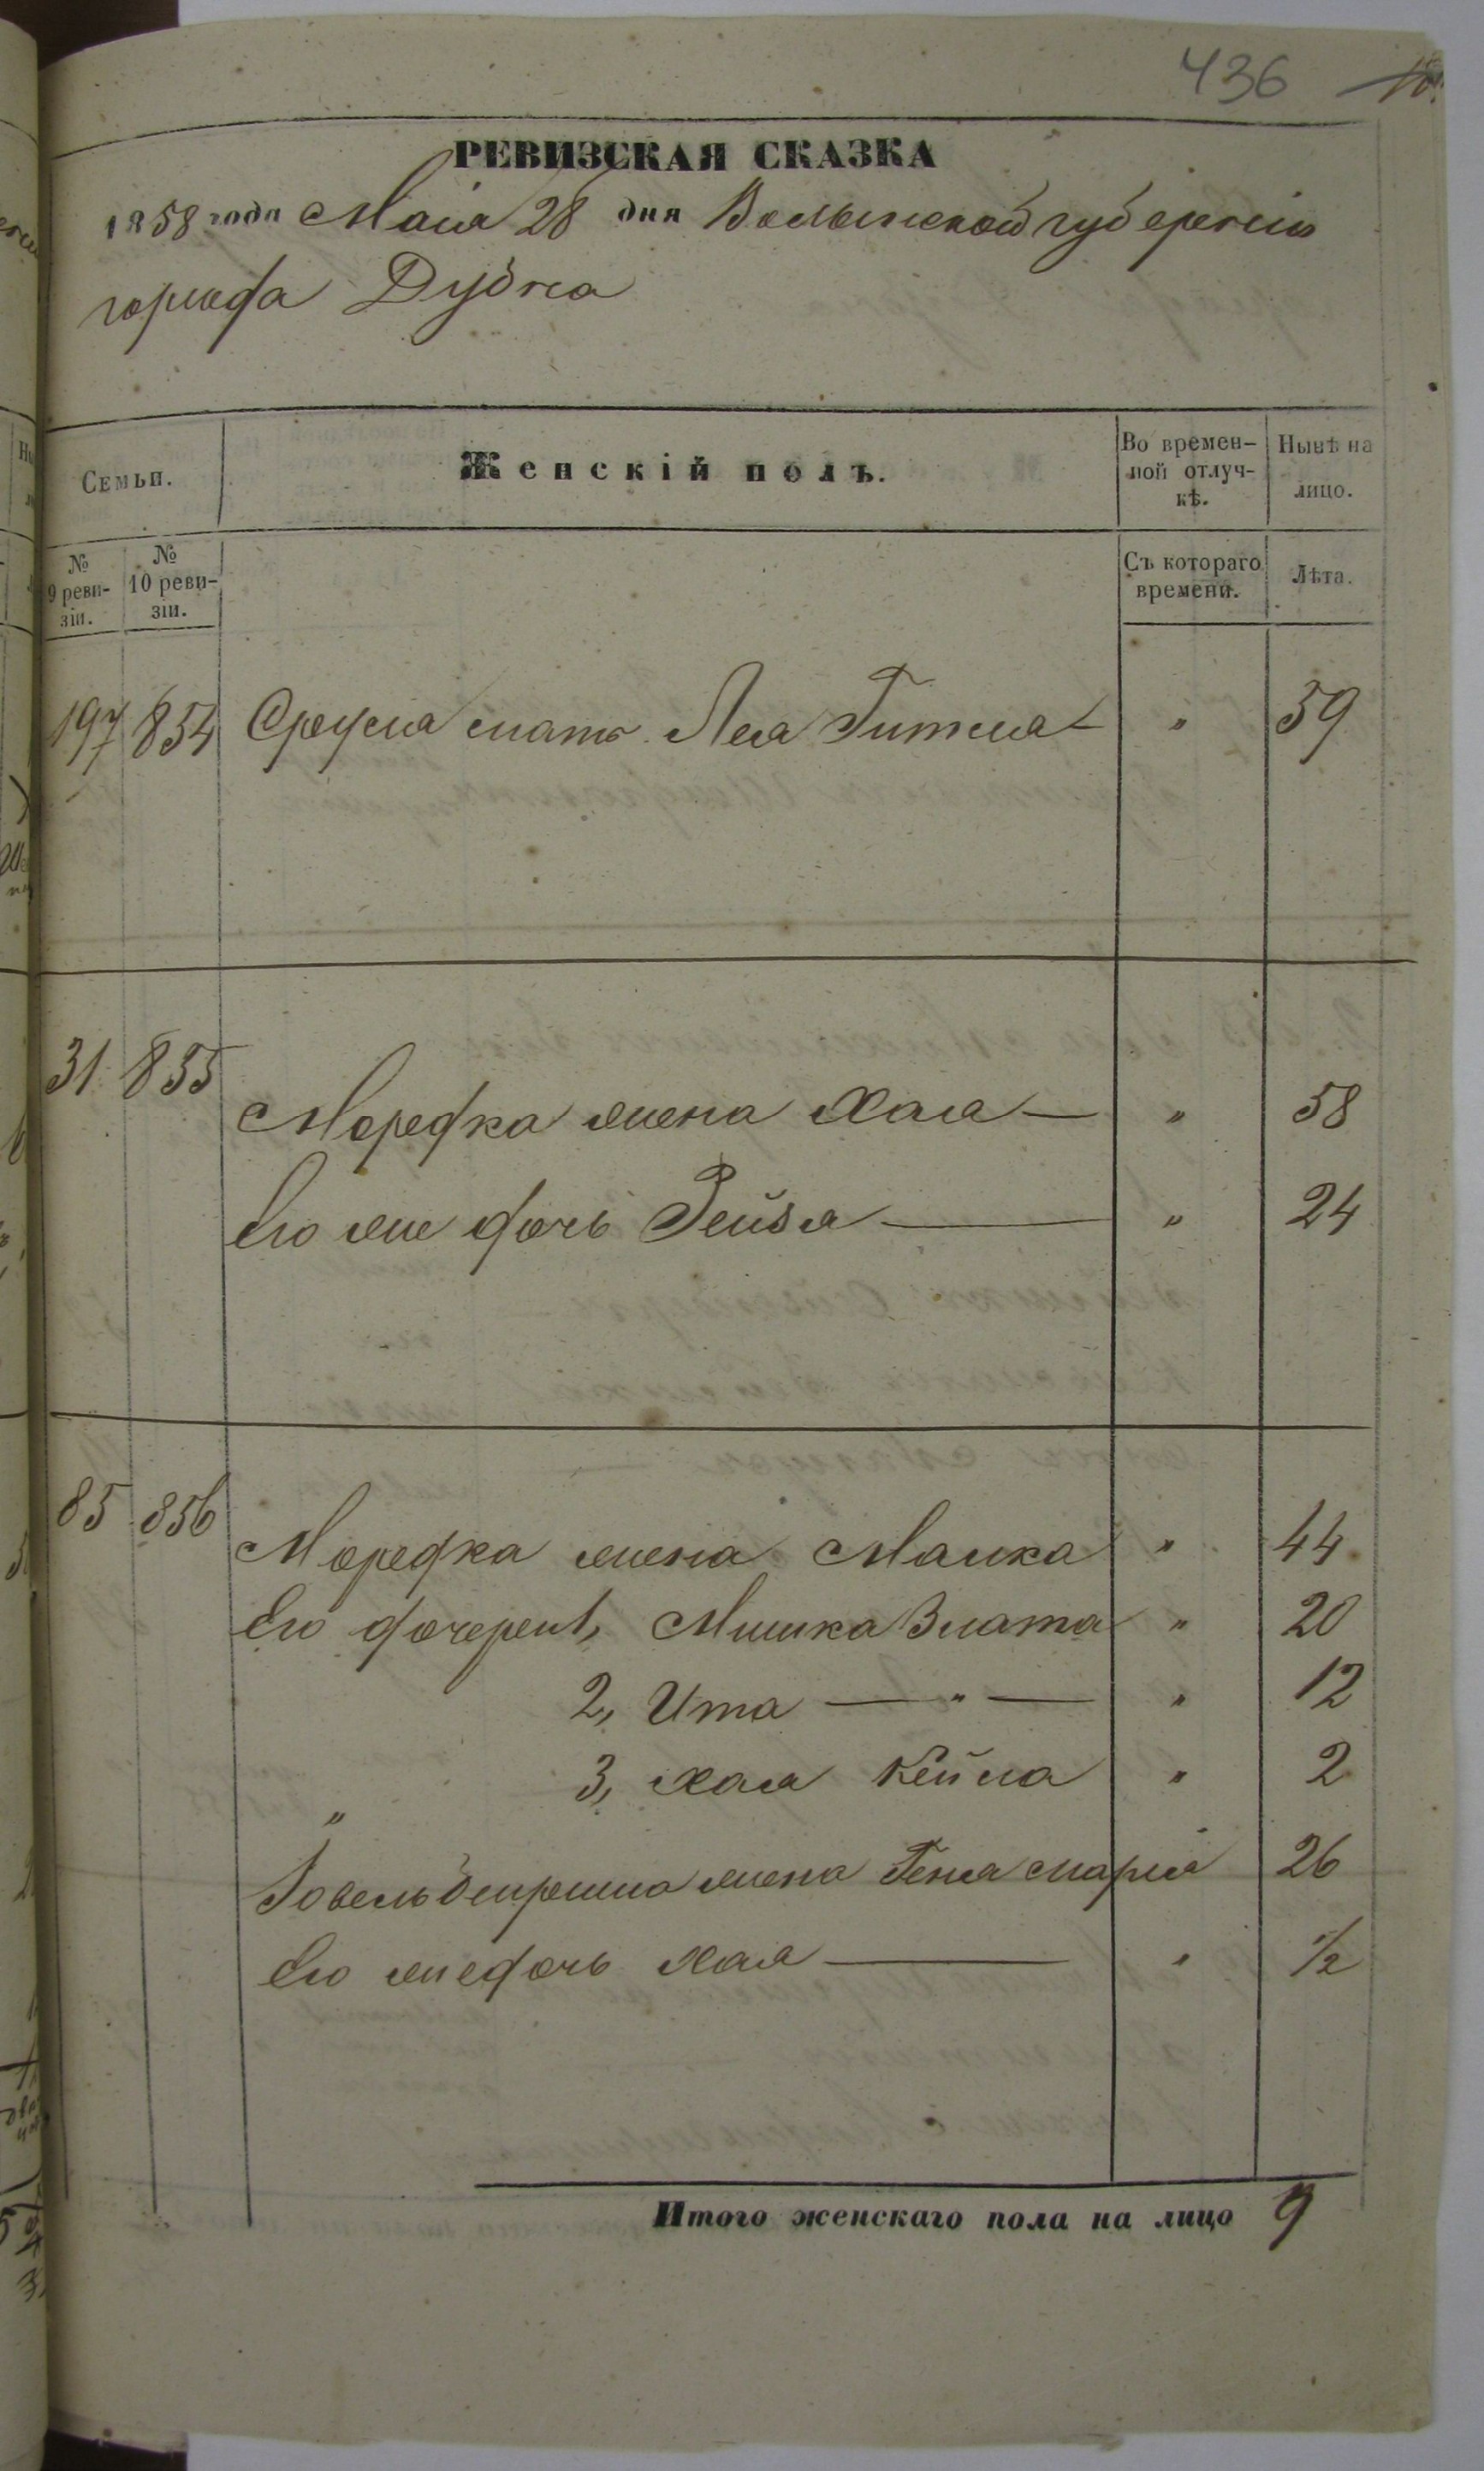 436
РЕВИЗСКАЯ СКАЗКА
1858 года Маія 28 дня Волынской губерніи
города Дубна
Семьи.
Женскій полъ.
Во времен-
ной отлуч-
кѣ.
Нынѣ на
лицо.
№
9 реви-
зіи.
№
10 реви-
зіи.
Съ котораго
времени.
Лѣта.
197 854 Сруля мать Лея Гитля " 59
31 855
Мордка жена Хая — " 58
Его же дочь Рейзя — " 24
85 856
Мордка жена Малка " 44
Его дочери 1, Мишка Злата " 20
2, Ита — " — " 12
3, Хая Кейла " 2
"
жена Геня Маря 26
Его же дочь Хая — " 1/2
Итого женскаго пола на лицо 9